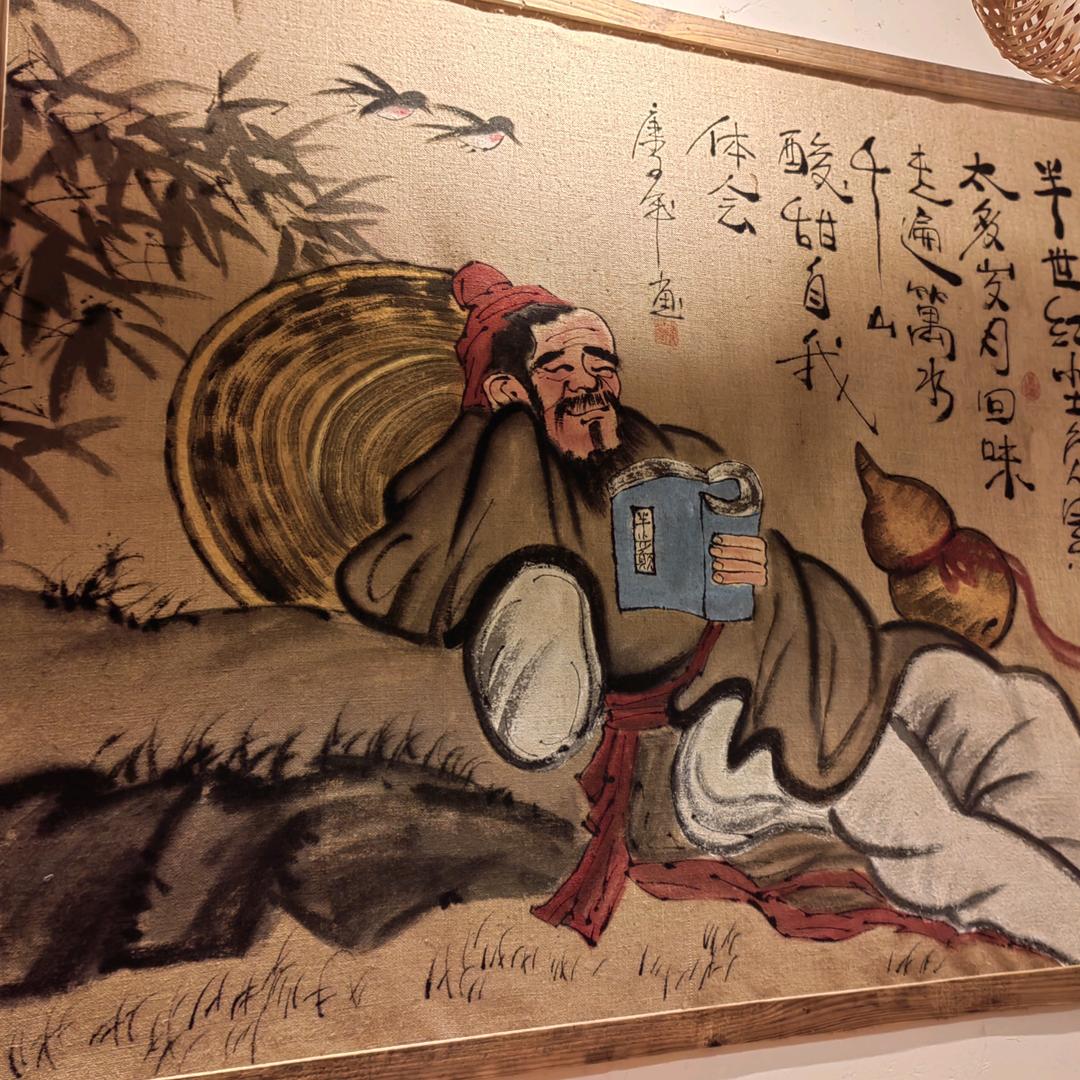 半世红尘
太多岁月回味
走遍萬水
千山
酸甜自我
体会
庚子年画
半